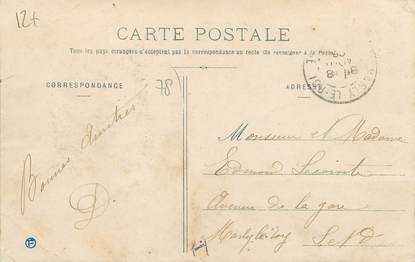 12t
CARTE POSTALE
Tous les pays étrangers n'acceptent pas la correspondance au recto (Se renseigner à la Poste)
CORRESPONDANCE
78
ADRES
MARLY-LE-ROI
Monsieur et Madame
Edmond Lecointe
Avenue de la gare
Marly le Roy
Bonnes
D.